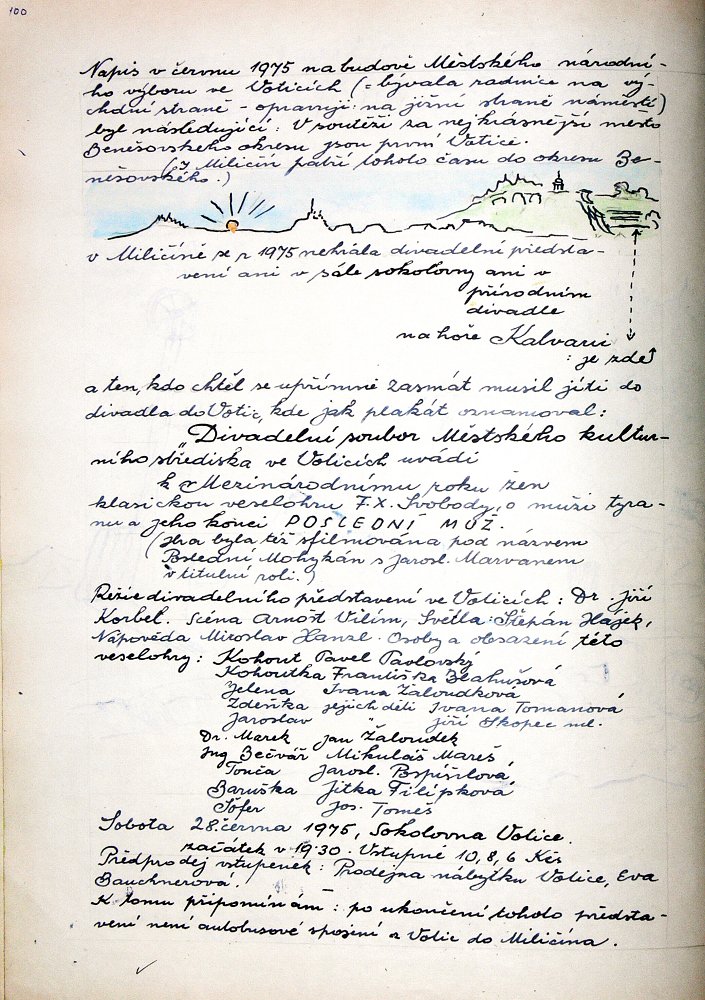 100
Nápis v červnu 1975 na budově Městského národní-
ho výboru ve Voticích (= bývalá radnice na vý-
chodní straně - opravují: na jižní straně náměstí)
byl následující: V soutěži za nejkrásnější město
Benešovského okresu jsou první Votice.
(I Miličín patří tohoto času do okresu Be-
nešovského.)
v Miličíně se r 1975 nehrála divadelní předsta-
vení ani v sále sokolovny ani v
přírodním
divadle
na hoře Kalvarii
: je zde
a ten, kdo chtěl se upřímně zasmát musil jíti do
divadla do Votic, kde jak plakát oznamoval:
"Divadelní soubor Městského kultur-
ního střediska ve Voticích uvádí
k Mezinárodnímu roku žen
klasickou veselohru F.X. Svobody, o muži tyra-
nu a jeho konci POSLEDNÍ MUŽ.
(Hra byla též sfilmována pod názvem
Poslední Mohykán s Jarosl. Marvanem
v titulní roli.)
Režie divadelního představení ve Voticích: Dr. Jiří
Korbel. Scéna Arnošt Vilím, Světla: Štěpán Hájek,
Nápověda Miroslav Hanzl. Osoby a obsazení této
veselohry: Kohout Pavel Pavlovský
Kohoutka Františka Blahušová
Jelena Ivana Žaloudková
Zdeňka jejich děti Ivana Tomanová
Jaroslav " Jiří Skopec ml.
Dr. Marek Jan Žaloudek
Ing Bečvář Mikuláš Mareš
Tonča Jarosl. Pospíšilová
Baruška Jitka Filípková
Šofer Jos. Tomeš
Sobota 28. června 1975, Sokolovna Votice.
začátek v 19.30. Vstupné 10, 8, 6 Kčs
Předprodej vstupenek: Prodejna nábytku Votice, Eva
Bauchnerová.
K tomu připomínám: po ukončení tohoto předsta-
vení není autobusové spojení z Votic do Miličína.